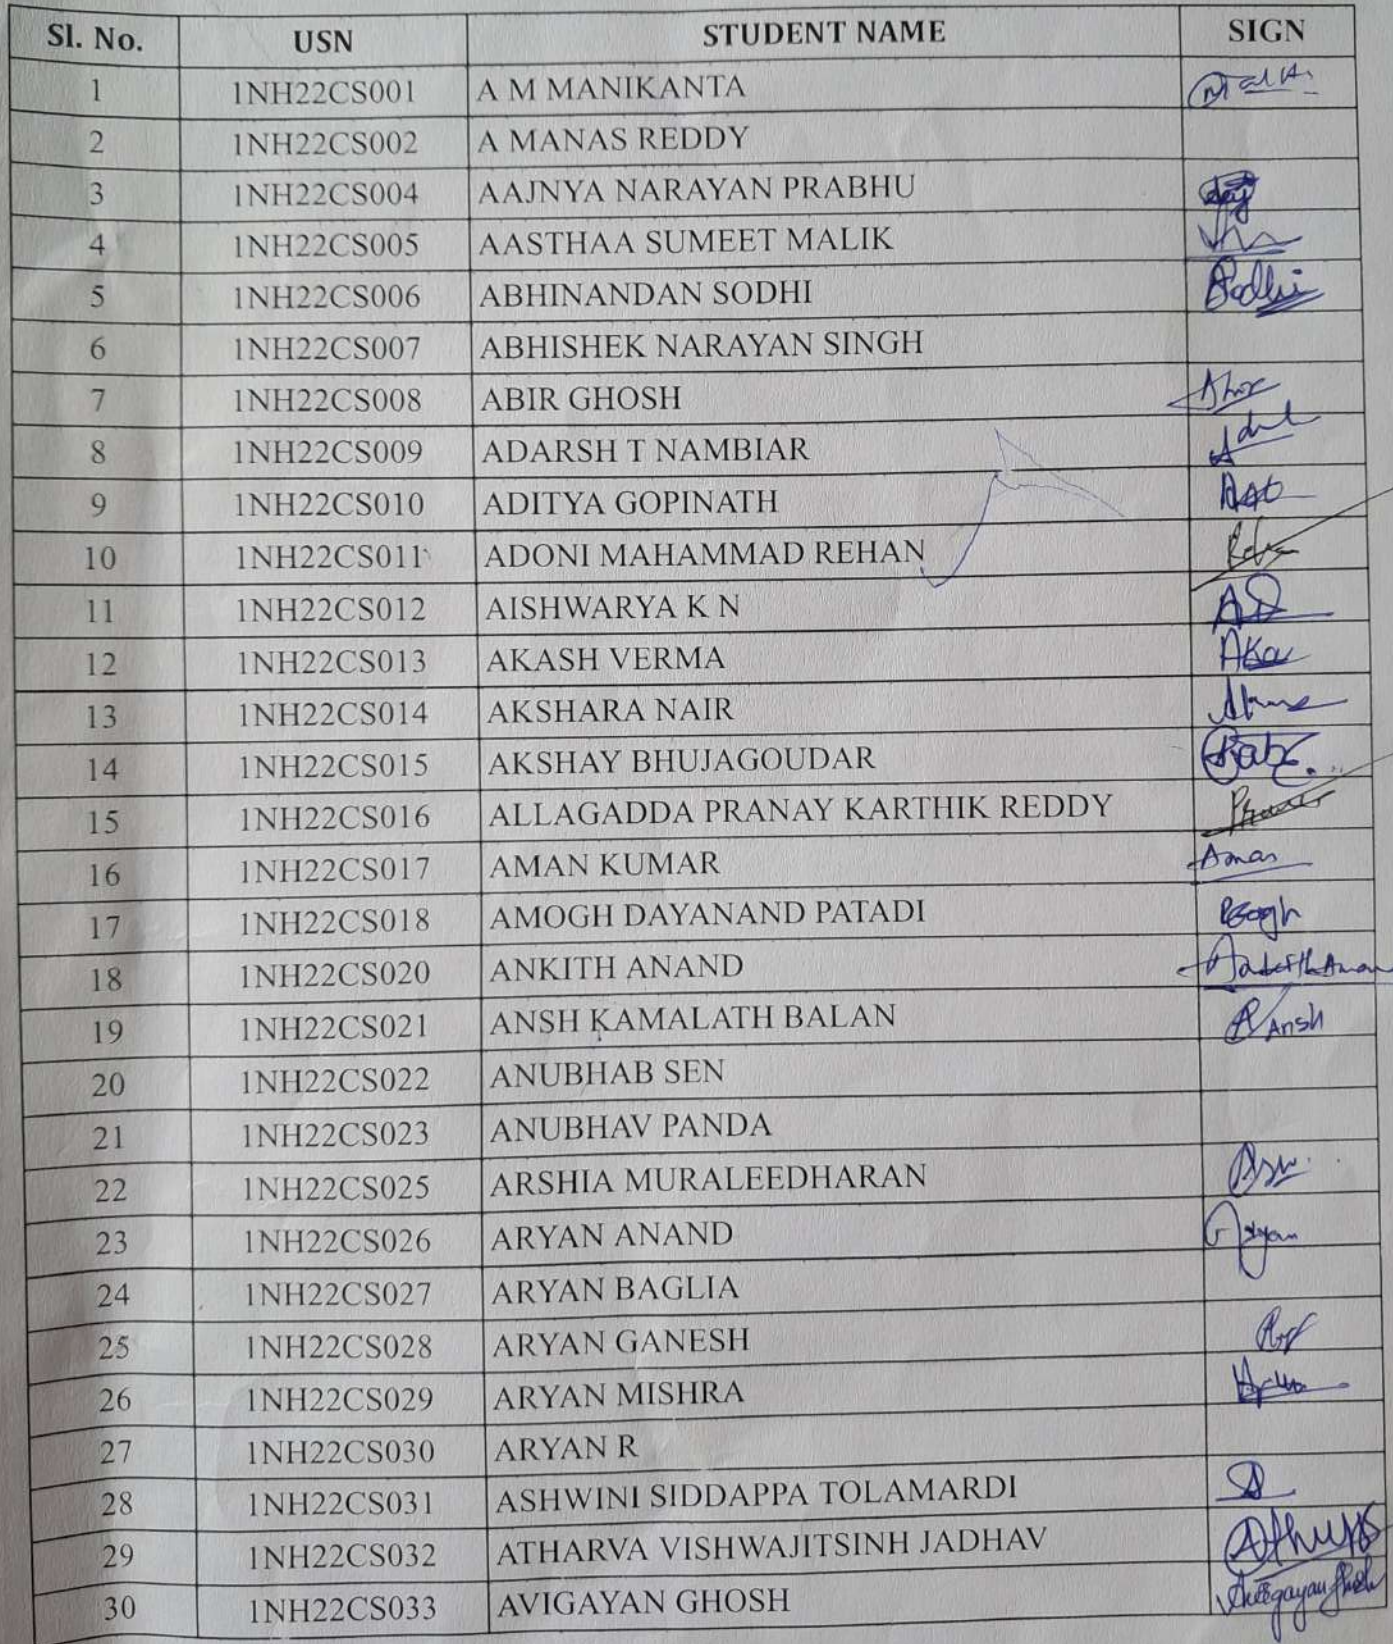 Sl. No. USN STUDENT NAME SIGN
1 1NH22CS001 A M MANIKANTA
2 1NH22CS002 A MANAS REDDY
3 1NH22CS004 AAJNYA NARAYAN PRABHU
4 1NH22CS005 AASTHAA SUMEET MALIK
5 1NH22CS006 ABHINANDAN SODHI
6 1NH22CS007 ABHISHEK NARAYAN SINGH
7 1NH22CS008 ABIR GHOSH
8 1NH22CS009 ADARSH T NAMBIAR
9 1NH22CS010 ADITYA GOPINATH
10 1NH22CS011 ADONI MAHAMMAD REHAN
11 1NH22CS012 AISHWARYA K N
12 1NH22CS013 AKASH VERMA
13 1NH22CS014 AKSHARA NAIR
14 1NH22CS015 AKSHAY BHUJAGOUDAR
15 1NH22CS016 ALLAGADDA PRANAY KARTHIK REDDY
16 1NH22CS017 AMAN KUMAR Aman
17 1NH22CS018 AMOGH DAYANAND PATADI
18 1NH22CS020 ANKITH ANAND
19 1NH22CS021 ANSH KAMALATH BALAN Ansh
20 1NH22CS022 ANUBHAB SEN
21 1NH22CS023 ANUBHAV PANDA
22 1NH22CS025 ARSHIA MURALEEDHARAN
23 1NH22CS026 ARYAN ANAND
24 1NH22CS027 ARYAN BAGLIA
25 1NH22CS028 ARYAN GANESH
26 1NH22CS029 ARYAN MISHRA
27 1NH22CS030 ARYAN R
28 1NH22CS031 ASHWINI SIDDAPPA TOLAMARDI
29 1NH22CS032 ATHARVA VISHWAJITSINH JADHAV
30 1NH22CS033 AVIGAYAN GHOSH